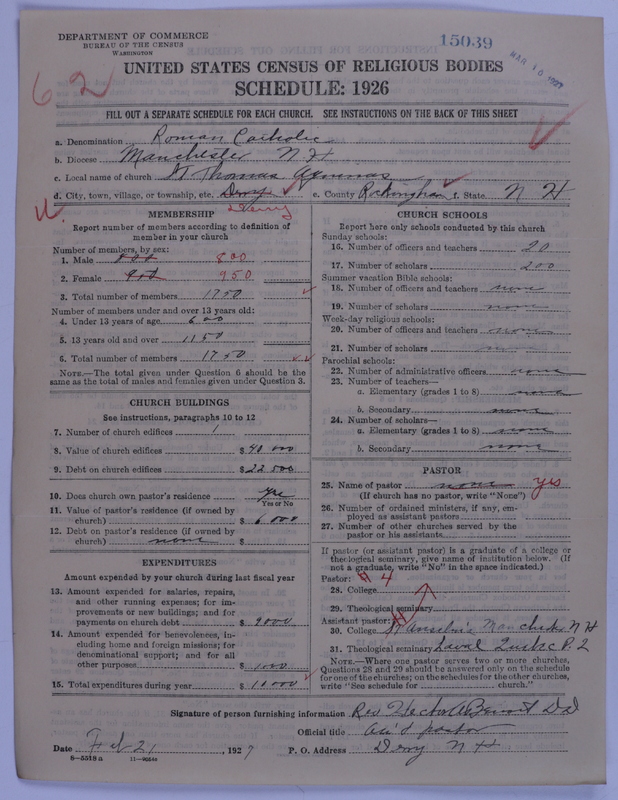 DEPARTMENT OF COMMERCE
BUREAU OF THE CENSUS
WASHINGTON
15039
MAR 10 1927
62
UNITED STATES CENSUS OF RELIGIOUS BODIES
SCHEDULE: 1926
FILL OUT A SEPARATE SCHEDULE FOR EACH CHURCH. SEE INSTRUCTIONS ON THE BACK OF THIS SHEET
a. Denomination Roman Catholic
b. Diocese Manchester N H
c. Local name of church St Thomas Aquinas
d. City, town, village, or township, etc. Derry e. County Rockingham f. State N H
Derry
MEMBERSHIP
Report number of members according to definition of
member in your church
Number of members, by sex:
1. Male 800 800
2. Female 900 950
3. Total number of members 1750
Number of members under and over 13 years old:
4. Under 13 years of age 600
5. 13 years old and over 1150
6. Total number of members 1750
NOTE.—The total given under Question 6 should be the
same as the total of males and females given under Question 3.
CHURCH BUILDINGS
See instructions, paragraphs 10 to 12
7. Number of church edifices 1
8. Value of church edifices $40 000
9. Debt on church edifices $22 500
10. Does church own pastor's residence yes
Yes or No
11. Value of pastor's residence (if owned by
church) $ 6 000
12. Debt on pastor's residence (if owned by
church) none $
EXPENDITURES
Amount expended by your church during last fiscal year
13. Amount expended for salaries, repairs,
and other running expenses; for im-
provements or new buildings; and for
payments on church debt $ 9000
14. Amount expended for benevolences, in-
cluding home and foreign missions; for
denominational support; and for all
other purposes $ 1000
15. Total expenditures during year $ 10000
CHURCH SCHOOLS
Report here only schools conducted by this church
Sunday schools:
16. Number of officers and teachers 20
17. Number of scholars 200
Summer vacation Bible schools:
18. Number of officers and teachers none
19. Number of scholars none
Week-day religious schools:
20. Number of officers and teachers none
21. Number of scholars
Parochial schools:
22. Number of administrative officers none
23. Number of teachers—
a. Elementary (grades 1 to 8) none
b. Secondary none
24. Number of scholars—
a. Elementary (grades 1 to 8) none
b. Secondary none
PASTOR
25. Name of pastor none yes
(If church has no pastor, write "None")
26. Number of ordained ministers, if any, em-
ployed as assistant pastors
27. Number of other churches served by the
pastor or his assistants
If pastor (or assistant pastor) is a graduate of a college or
theological seminary, give name of institution below. (If
not a graduate, write "No" in the space indicated.)
Pastor: 4
28. College
29. Theological seminary
Assistant pastor:
30. College St Anselm's Manchester N H
31. Theological seminary Laval Quebec P. Q
NOTE.—Where one pastor serves two or more churches,
Questions 28 and 29 should be answered only on the schedule
for one of the churches; on the schedules for the other churches,
write "See schedule for church."
Signature of person furnishing information Rev Hector A Benoit
Official title Act'g pastor
Date Feb 21, 1927 P. O. Address Derry N H
8-5518a